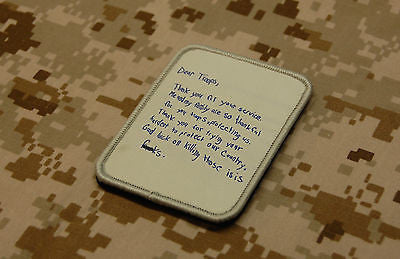 Dear Troops,
Thank you for your service.
Me and my family are so thankful
for you troops protecting us.
Thank you for trying your
hardest to protect our country.
God luck on killing those isis